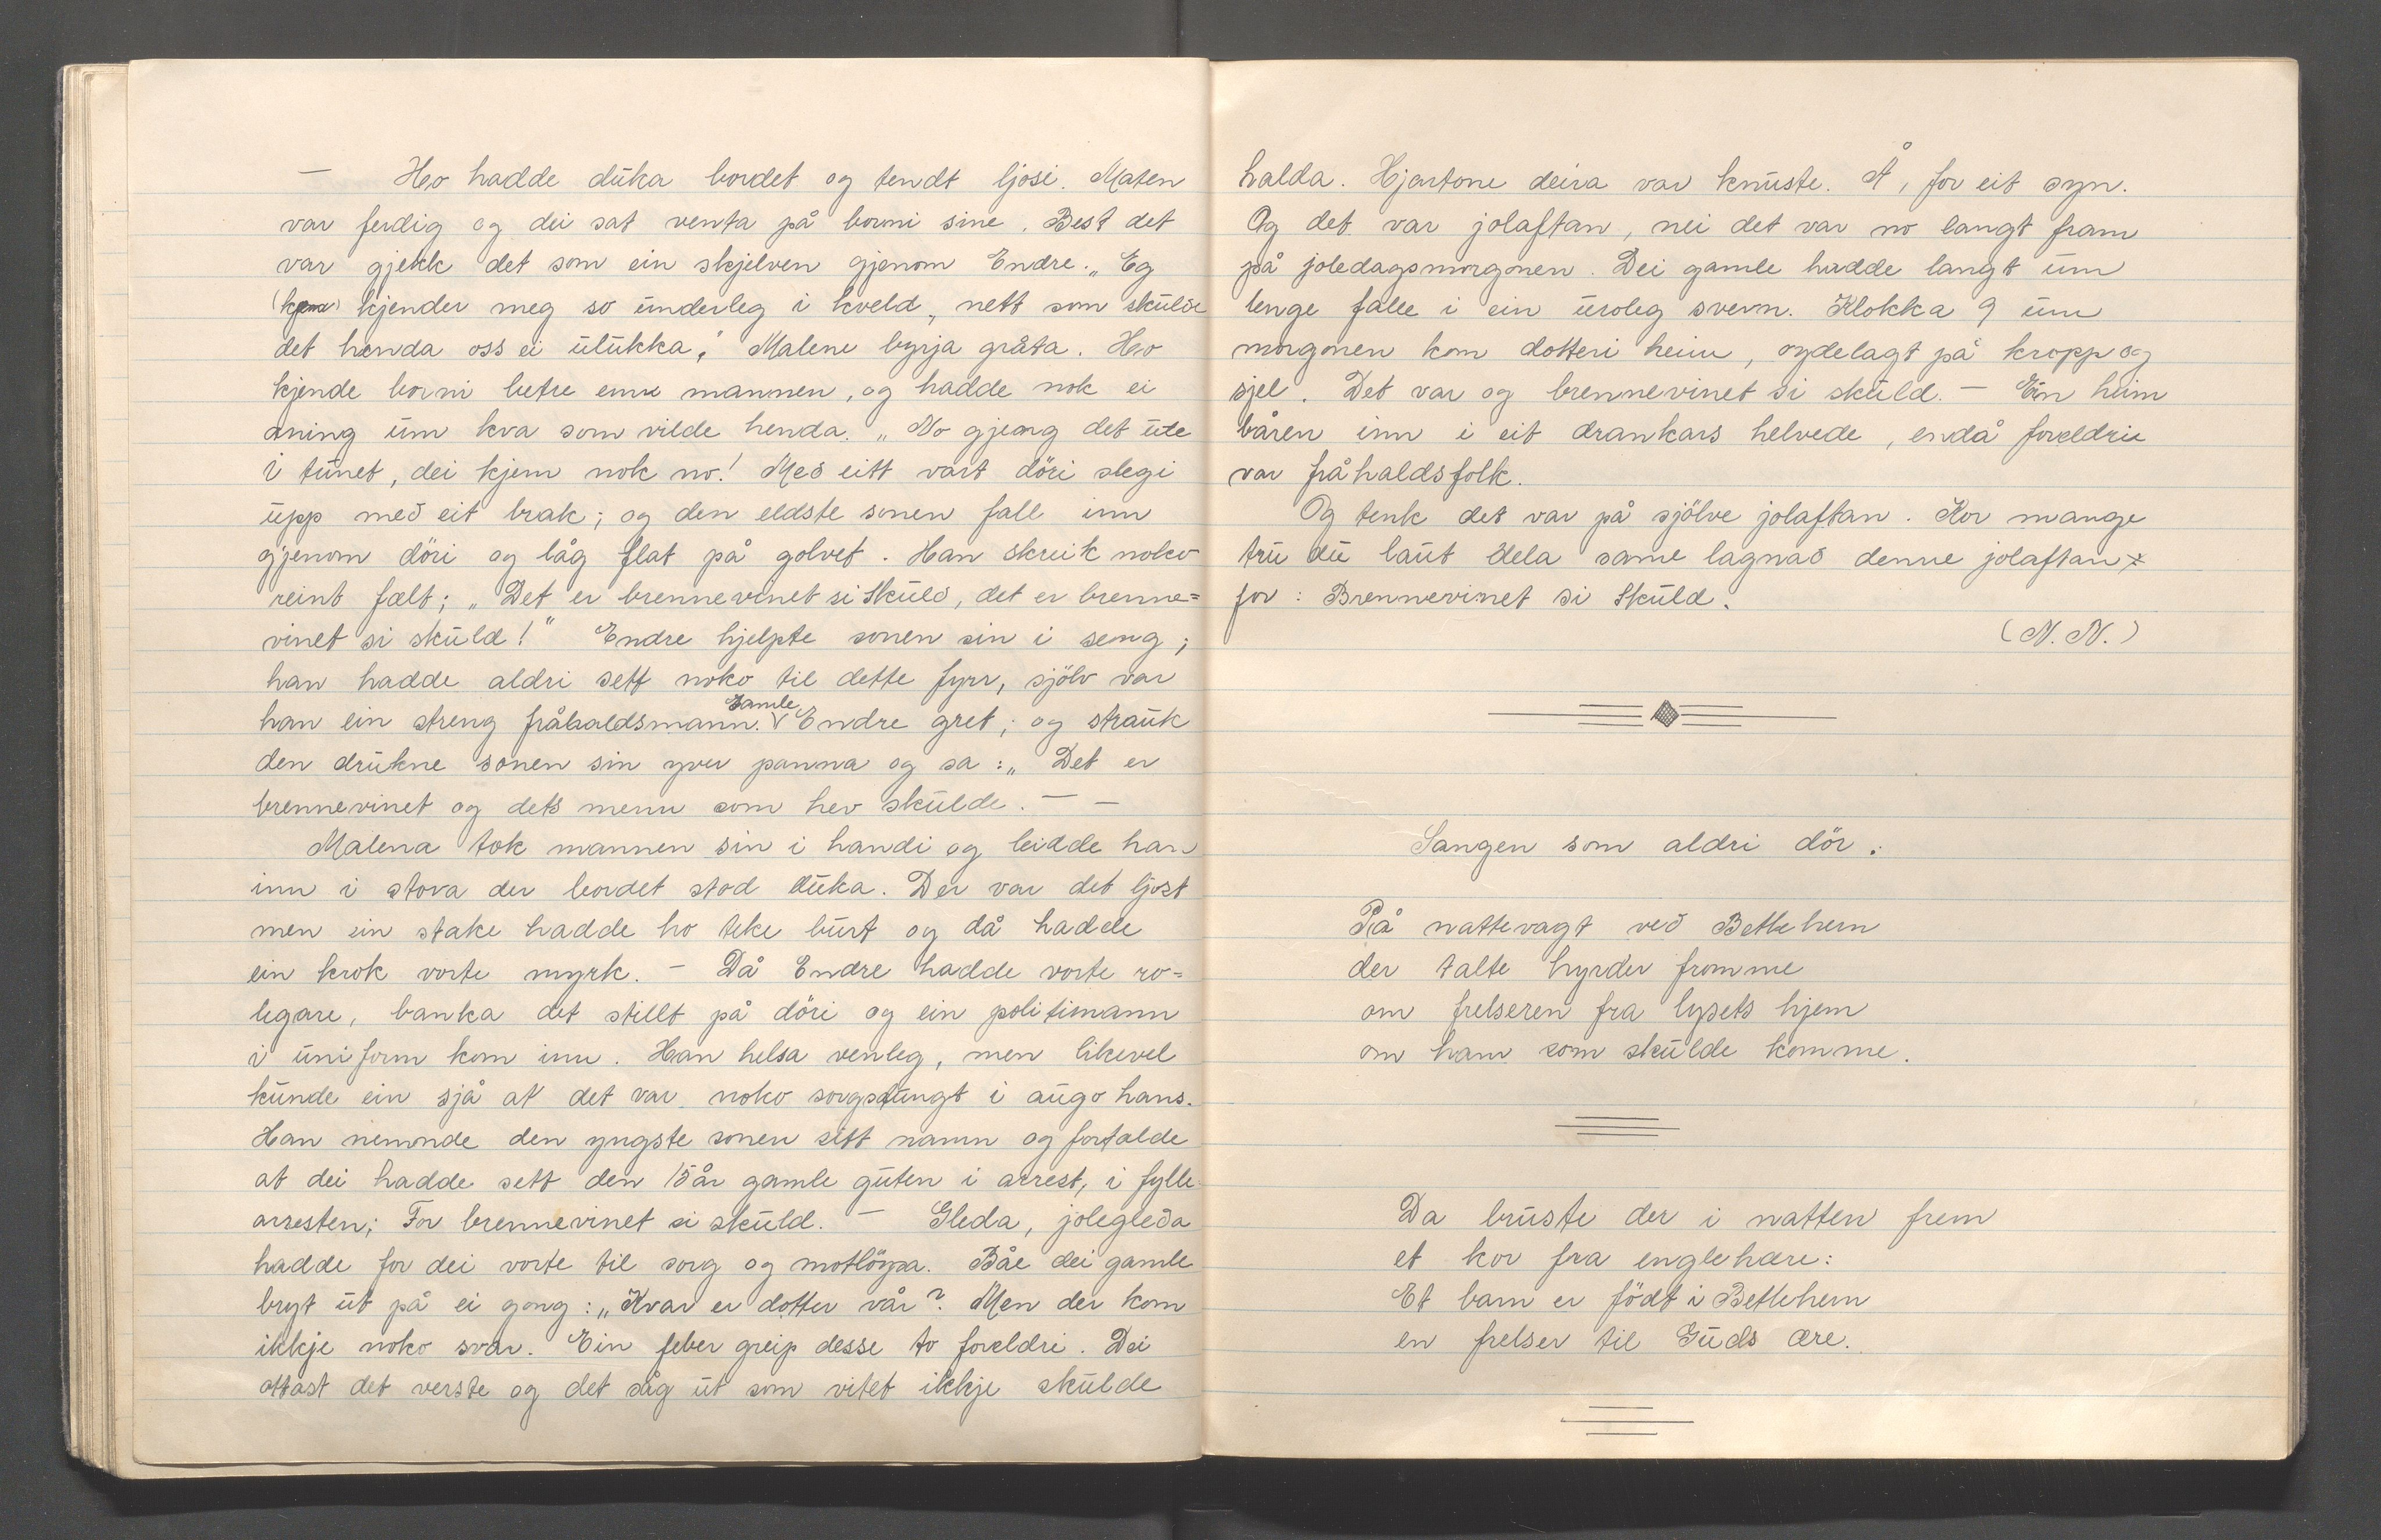 — Ho hadde duka bordet og tendt ljosi. Maten
var ferdig og dei sat venta på borni sine. Best det
var gjekk det som ein skjelven gjenom Endre. „Eg
(kjem) kjender meg so underleg i kveld, nett som skulde
det henda oss ei ulukka." Malene byrja gråta. Ho
kjende borni betre enn mannen, og hadde nok ei
aning um kva som vilde henda. „No gjeng det ute
i tunet, dei kjem nok no! Med eitt vart döri slegi
upp med eit brak; og den eldste sonen fall inn
gjenom döri og låg flat på golvet. Han skreik noko
reint fælt; „Det er brennevinet si skuld, det er brenne=
vinet si skuld!" Endre hjelpte sonen sin i seng;
han hadde aldri sett noko til dette fyrr, sjölv var
han ein streng fråhaldsmann. Gamle Endre gret; og strauk
den drukne sonen sin yver panna og sa: „Det er
brennevinet og dets menn som hev skulde. — —
Malena tok mannen sin i handi og leidde han
inn i stova der bordet stod duka. Der var det ljost
men ein stake hadde ho teke burt og då hadde
ein krok vorte myrk. — Då Endre hadde vorte ro=
legare, banka det stillt på döri og ein politimann
i uniform kom inn. Han helsa venleg, men likevel
kunde ein sjå at det var noko sorgstungt i augo hans.
Han nemnde den yngste sonen sitt namn og fortalde
at dei hadde sett den 15 år gamle guten i arrest, i fylle-
arresten; For brennevinet si skuld. — Gleda, jolegleda
hadde for dei vorte til sorg og motlöysa. Båe dei gamle
bryt ut på ei gong: „Kvar er dotter vår? Men der kom
ikkje noko svar. Ein feber greip desse to foreldri. Dei
ottast det verste og det såg ut som vitet ikkje skulde
halda. Hjartone deira var knuste. Å, for eit syn.
Og det var jolaftan, nei det var no langt fram
på joledagsmorgonen. Dei gamle hadde langt um
lenge falle i ein uroleg svevn. Klokka 9 um
morgonen kom dotteri heim, oydelagt på kropp og
sjel. Det var og brennevinet si skuld. — Ein heim
båren inn i eit drankars helvede, endå foreldrie
var fråhaldsfolk.
Og tenk det var på sjölve jolaftan. Kor mange
tru du laut dela same lagnad denne jolaftan
for: Brennevinet si skuld.
(N. N.)
Sangen som aldri dör.
På nattevagt ved Betlehem
der talte hyrder fromme
om frelseren fra lysets hjem
om ham som skulde komme.
Da bruste der i natten frem
et kor fra englehære:
Et barn er födt i Betlehem
en frelser til Guds ære.